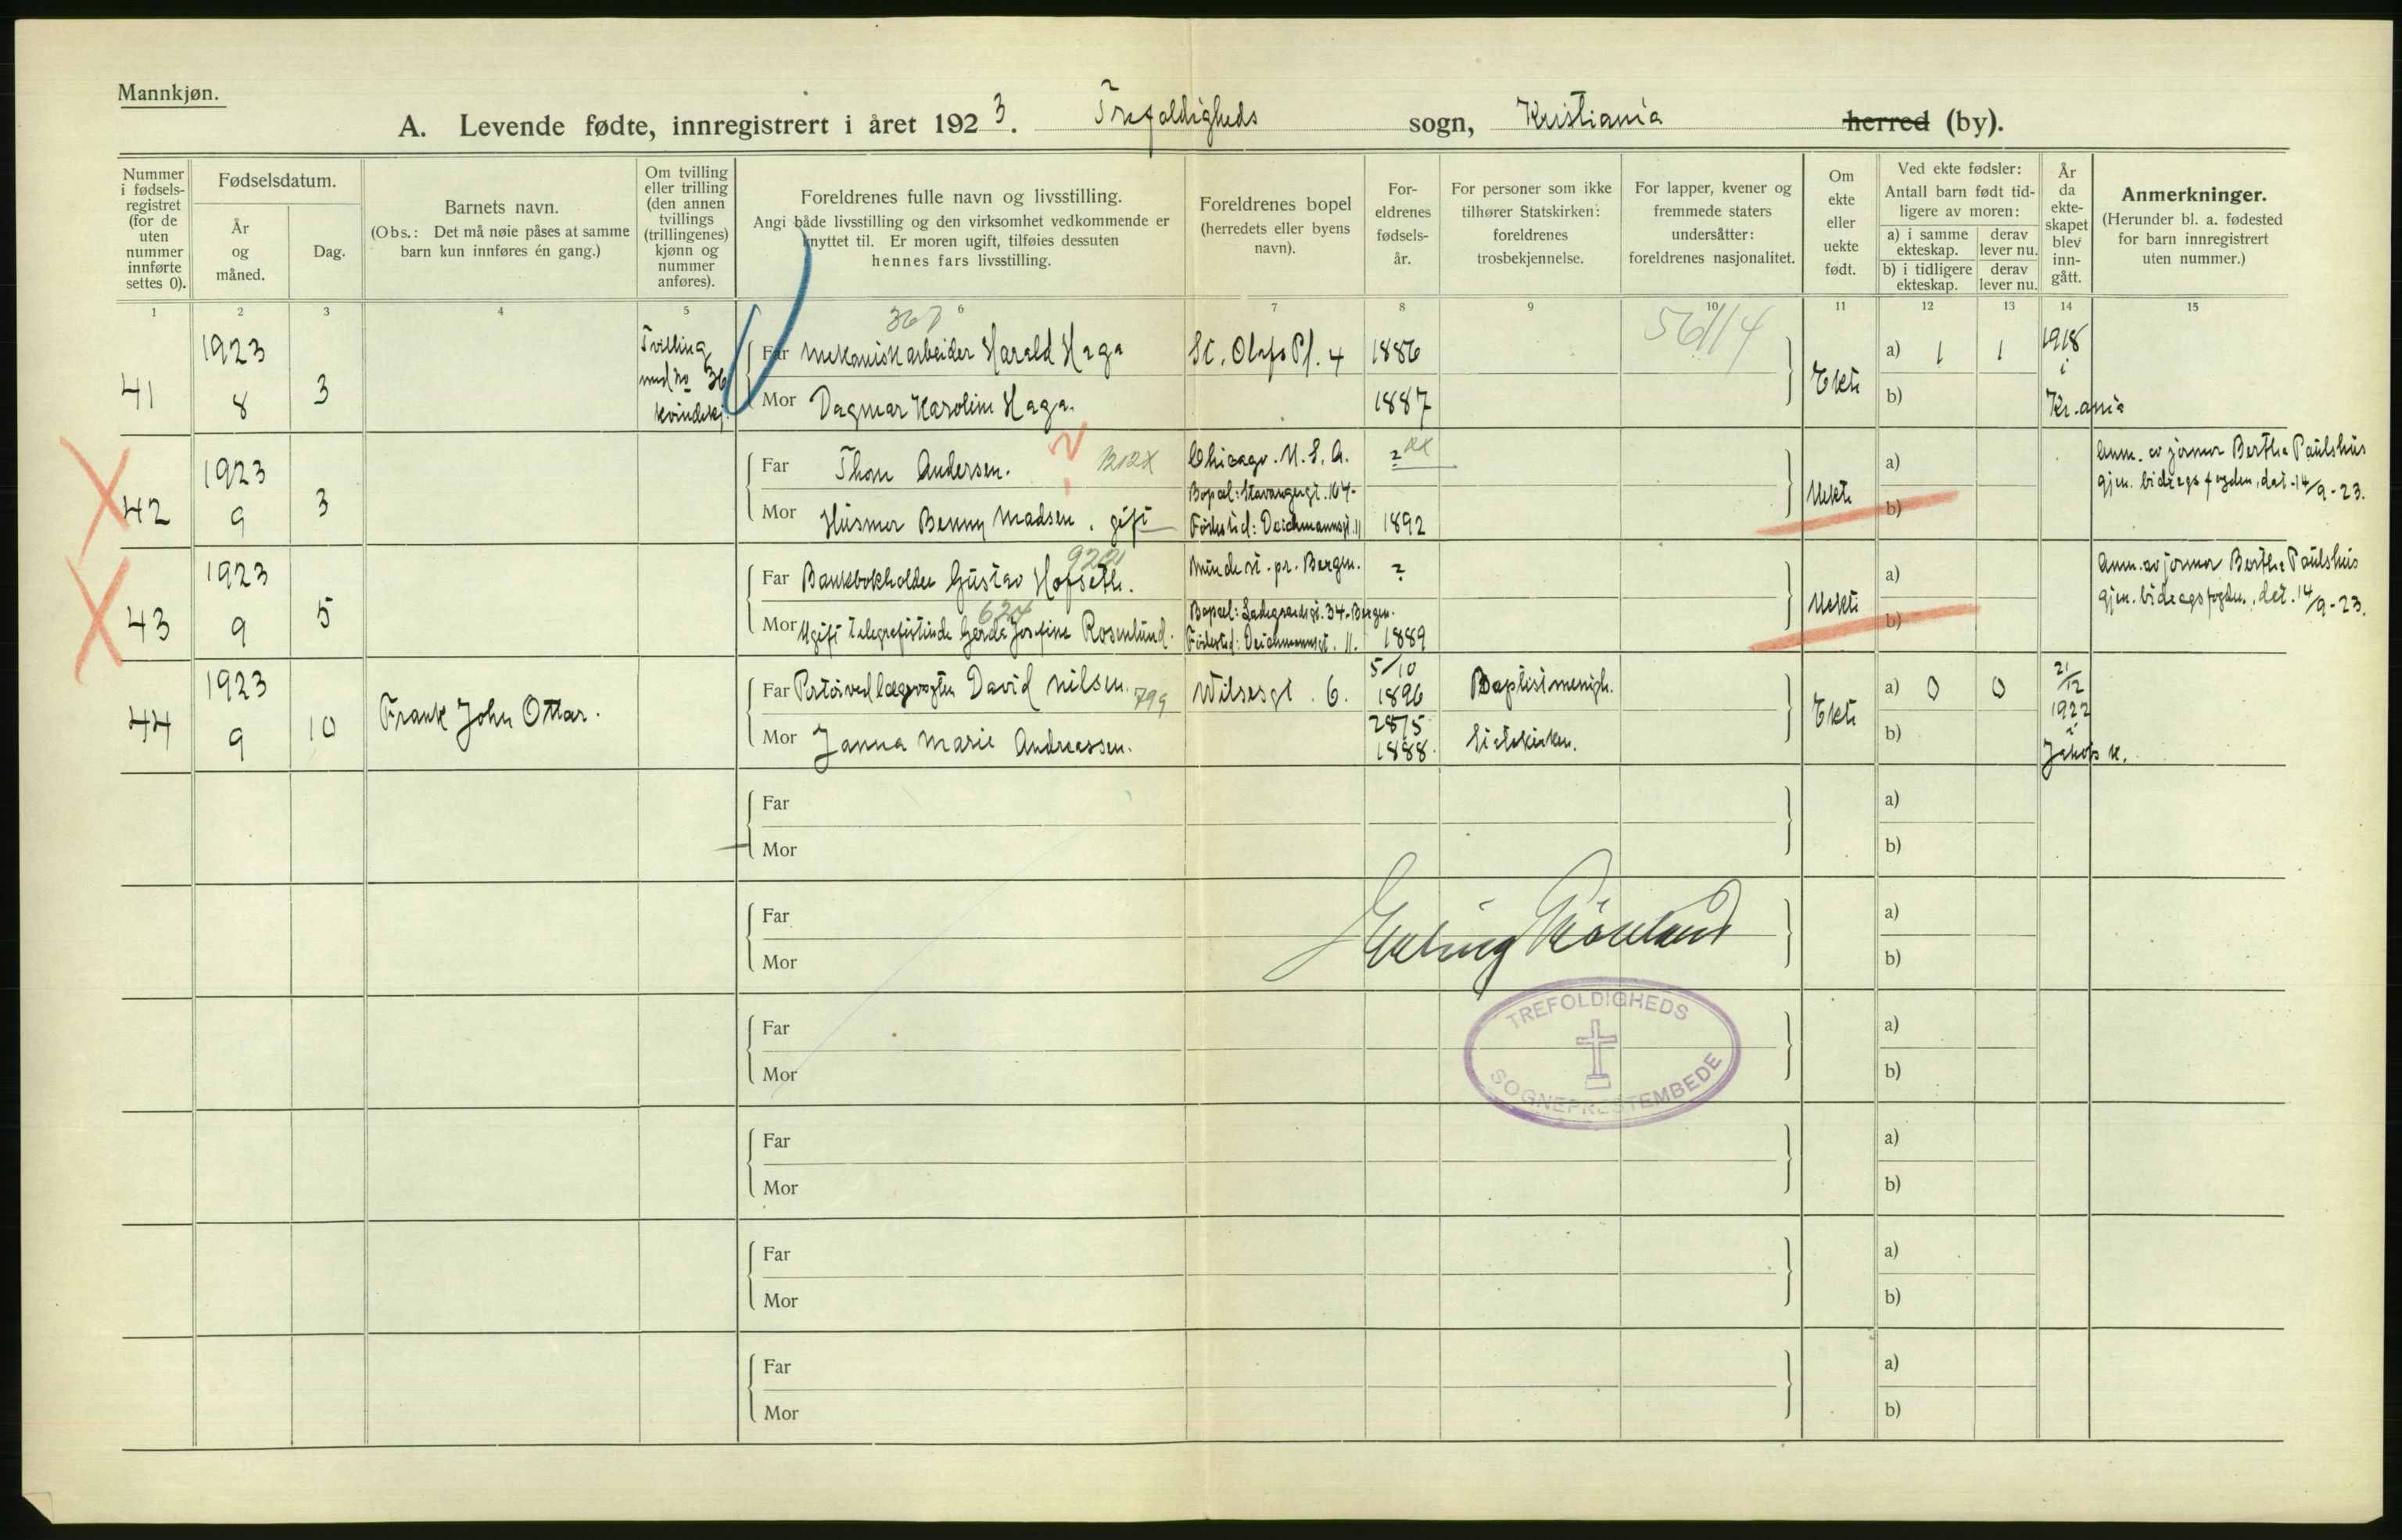 Mannkjøn.
A. Levende fødte, innregistrert i året 1923. Trefoldigheds sogn, Kristiania herred (by).
Nummer
i fødsels-
registret
(for de
uten
nummer
innførte
settes 0).
Fødselsdatum.
År
og
måned.
Dag.
Barnets navn.
(Obs.: Det må nøie påses at samme
barn kun innføres én gang.)
Om tvilling
eller trilling
(den annen
tvillings
(trillingenes)
kjønn og
nummer
anføres).
Foreldrenes fulle navn og livsstilling.
Angi både livsstilling og den virksomhet vedkommende er
knyttet til. Er moren ugift, tilføies dessuten
hennes fars livsstilling.
Foreldrenes bopel
(herredets eller byens
navn).
For-
eldrenes
fødsels-
år.
For personer som ikke
tilhører Statskirken:
foreldrenes
trosbekjennelse.
For lapper, kvener og
fremmede staters
undersåtter:
foreldrenes nasjonalitet.
Om
ekte
eller
uekte
født.
Ved ekte fødsler:
Antall barn født tid-
ligere av moren:
a) i samme
ekteskap.
derav
lever nu.
b) i tidligere
ekteskap.
derav
lever nu.
År
da
ekte-
skapet
blev
inn-
gått.
Anmerkninger.
(Herunder bl. a. fødested
for barn innregistrert
uten nummer.)
1 2 3 4 5 6 7 8 9 10 11 12 13 14 15
367
56114
41
1923
8
3
Tvilling
med no 36
kvindekj.
Far Mekanisk arbeider Harald Haga
St. Olafs Pl. 4
1886
Mor Dagmar Karoline Haga.
1887
Ekte
a) 1 1
b)
1918
i
Kr.ania
42
1923
9
3
Far Thom Andersen.
Chicago. U.S.A.
?
Mor Husmor Benny Madsen, gift
Bopæl: Stavangergt. 164-
Fødested: Deichmannsgt. 11
1892
Uekte
a)
b)
Anm. av jormor Berthe Paulshus
gjen. bidragsfogden, dat. 14/9-23.
43
1923
9
5
Far Bankbokholder Gustav Hofseth.
Minde st. pr. Bergen.
?
634
Mor Ugift telegrafistinde Gerda Josefine Rosenlund.
Bopæl: Ladegaardsgt. 34-Bergen.
Fødested: Deichmannsgt. 11.
1889
Uekte
a)
b)
Anm. av jormor Berthe Paulshus
gjen. bidragsfogden, dat. 14/9-23.
44
1923
9
10
Frank John Ottar.
Far David Nilsen. 799
Wilsesgt. 6.
5/10
1896
Baptistmenigh.
Mor Janna Marie Andreassen.
28/5
1888.
Statskirken.
Ekte
a) 0 0
b)
21/12
1922
i
Jakobs k.
Far
Mor
a)
b)
Far
Mor
a)
b)
Erling
Far
Mor
a)
b)
TREFOLDIGHEDS
SOGNEPRESTEMBEDE
Far
Mor
a)
b)
Far
Mor
a)
b)
Far
Mor
a)
b)